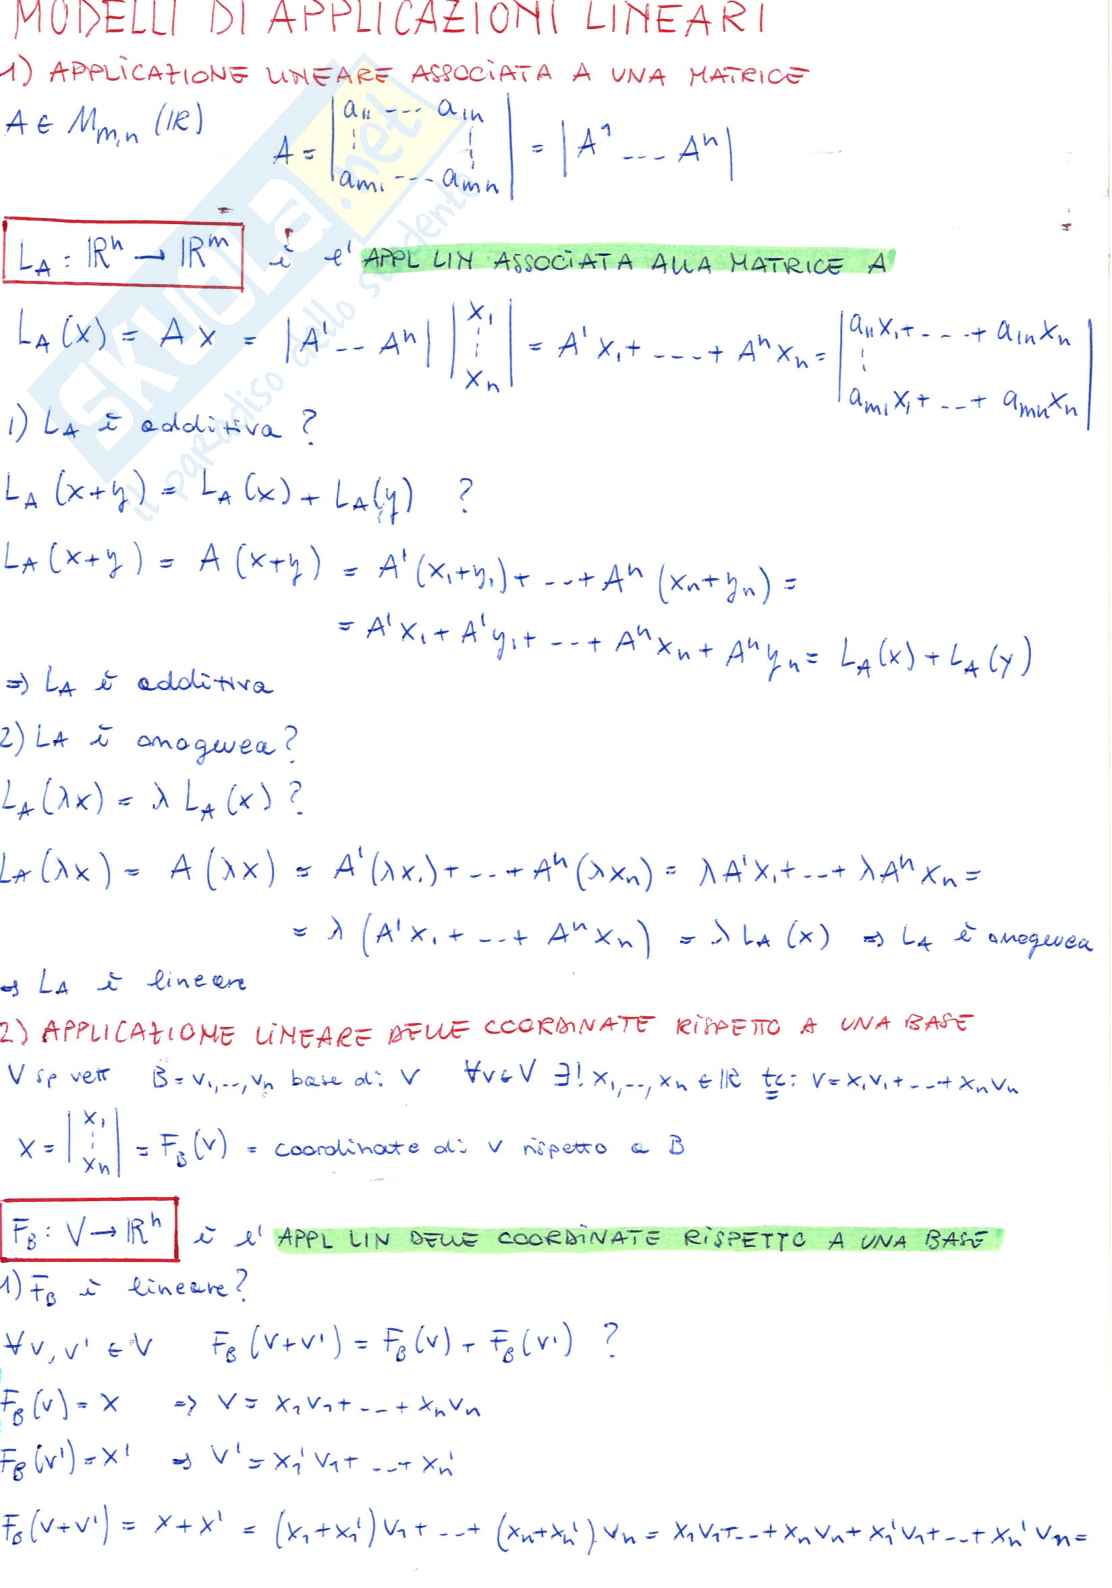 MODELLI DI APPLICAZIONI LINEARI
1) APPLICAZIONE LINEARE ASSOCIATA A UNA MATRICE
A ∈ M_{m,n} (ℝ)    A = |a_{11} --- a_{1n} ⋮ ⋮ a_{m1} --- a_{mn}| = |A^1 --- A^n|
L_A : ℝ^n → ℝ^m è l' APPL LIN ASSOCIATA ALLA MATRICE A
L_A(x) = A x = |A^1 -- A^n| |x_1 ⋮ x_n| = A^1 x_1 + ---- + A^n x_n = |a_{11}x_1 + - - -+ a_{1n}x_n ⋮ a_{m1}x_1 + --+ a_{mn}x_n|
1) L_A è additiva ?
L_A (x+y) = L_A (x) + L_A(y) ?
L_A (x+y) = A (x+y) = A^1 (x_1+y_1) + --+ A^n (x_n+y_n) =
= A^1 x_1 + A^1 y_1 + --+ A^n x_n + A^n y_n = L_A(x) + L_A(y)
⇒ L_A è additiva
2) L_A è omogenea ?
L_A(λx) = λ L_A (x) ?
L_A(λx) = A (λx) = A^1(λx_1) + --+ A^n(λx_n) = λA^1x_1 + --+ λA^n x_n =
= λ (A^1 x_1 + --+ A^n x_n) = λ L_A (x) ⇒ L_A è omogenea
⇒ L_A è lineare
2) APPLICAZIONE LINEARE DELLE COORDINATE RISPETTO A UNA BASE
V sp vett B = v_1,--,v_n base di V ∀v∈V ∃! x_1,--,x_n ∈ ℝ tc: v = x_1v_1 + --+ x_nv_n
x = |x_1 ⋮ x_n| = F_B(v) = coordinate di v rispetto a B
F_B : V → ℝ^n è l' APPL LIN DELLE COORDINATE RISPETTO A UNA BASE
1) F_B è lineare ?
∀v, v' ∈ V F_B (v+v') = F_B(v) + F_B(v') ?
F_B(v) = x ⇒ v = x_1v_1 + --+ x_nv_n
F_B(v') = x' ⇒ v' = x_1'v_1 + --+ x_n'
F_B(v+v') = x+x' = (x_1+x_1')v_1 + --+ (x_n+x_n')v_n = x_1v_1+--+x_nv_n+x_1'v_1+--+x_n'v_n =
SKUOLA.net
il paradiso dello studente